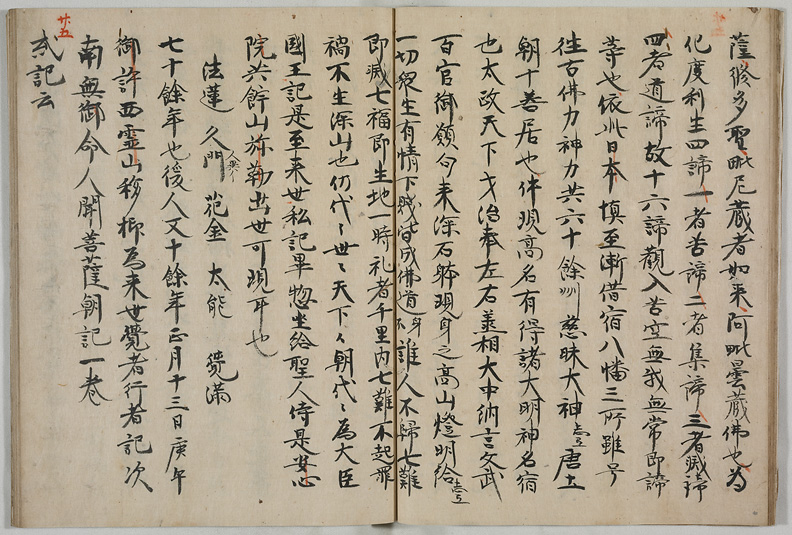 薩修多聖毗尼蔵者如来阿毗曇蔵佛也為
化度利生四諦一者苦諦二者集諦三者滅諦
四者道諦故十六諦觀入苦空無我無常即諦
等也依此日本慎至漸借宿八幡三所雖号
往古佛力神力共六十餘州慈昧大神唐土
朝十善居也伴現高名有得諸大明神名宿
也太政天下才治奉左右美相大中納言文武
百官御領勾来深石躰現身之高山燈明給
一切衆生有情下賤皆成佛道身不誰人不歸七難
即滅七福即生地一時礼者千里内七難不起罪
禍不生深山也仍代〻世〻天下〻朝代〻為大臣
國王記是至来世私記畢惣坐給聖人侍是安心
院共餝山弥勒出世可現耳也
法蓮 久門 花金 太能 覺満
七十餘年也後人又十餘年正月十三日庚午
御許西霊山移抑為来世覺者行者記次
南無御命人聞菩薩朝記一巻
或記云
廿五